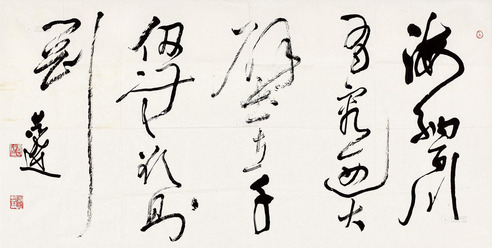 海納百川
有容迺大
壁立千
仞無欲則
剛